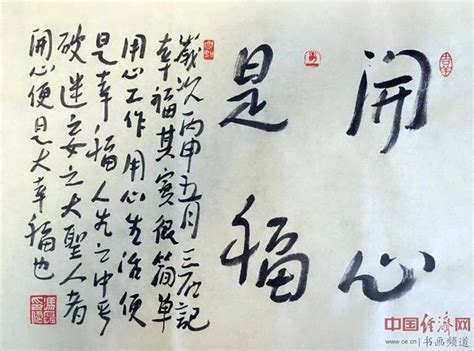 開心
是福
歲次丙申五月三石記
幸福其實很簡單
用心工作用心生活便
是幸福人生之中
破迷之大聖人者
開心便是大幸福也
中国经济网
www.ce.cn | 书画频道